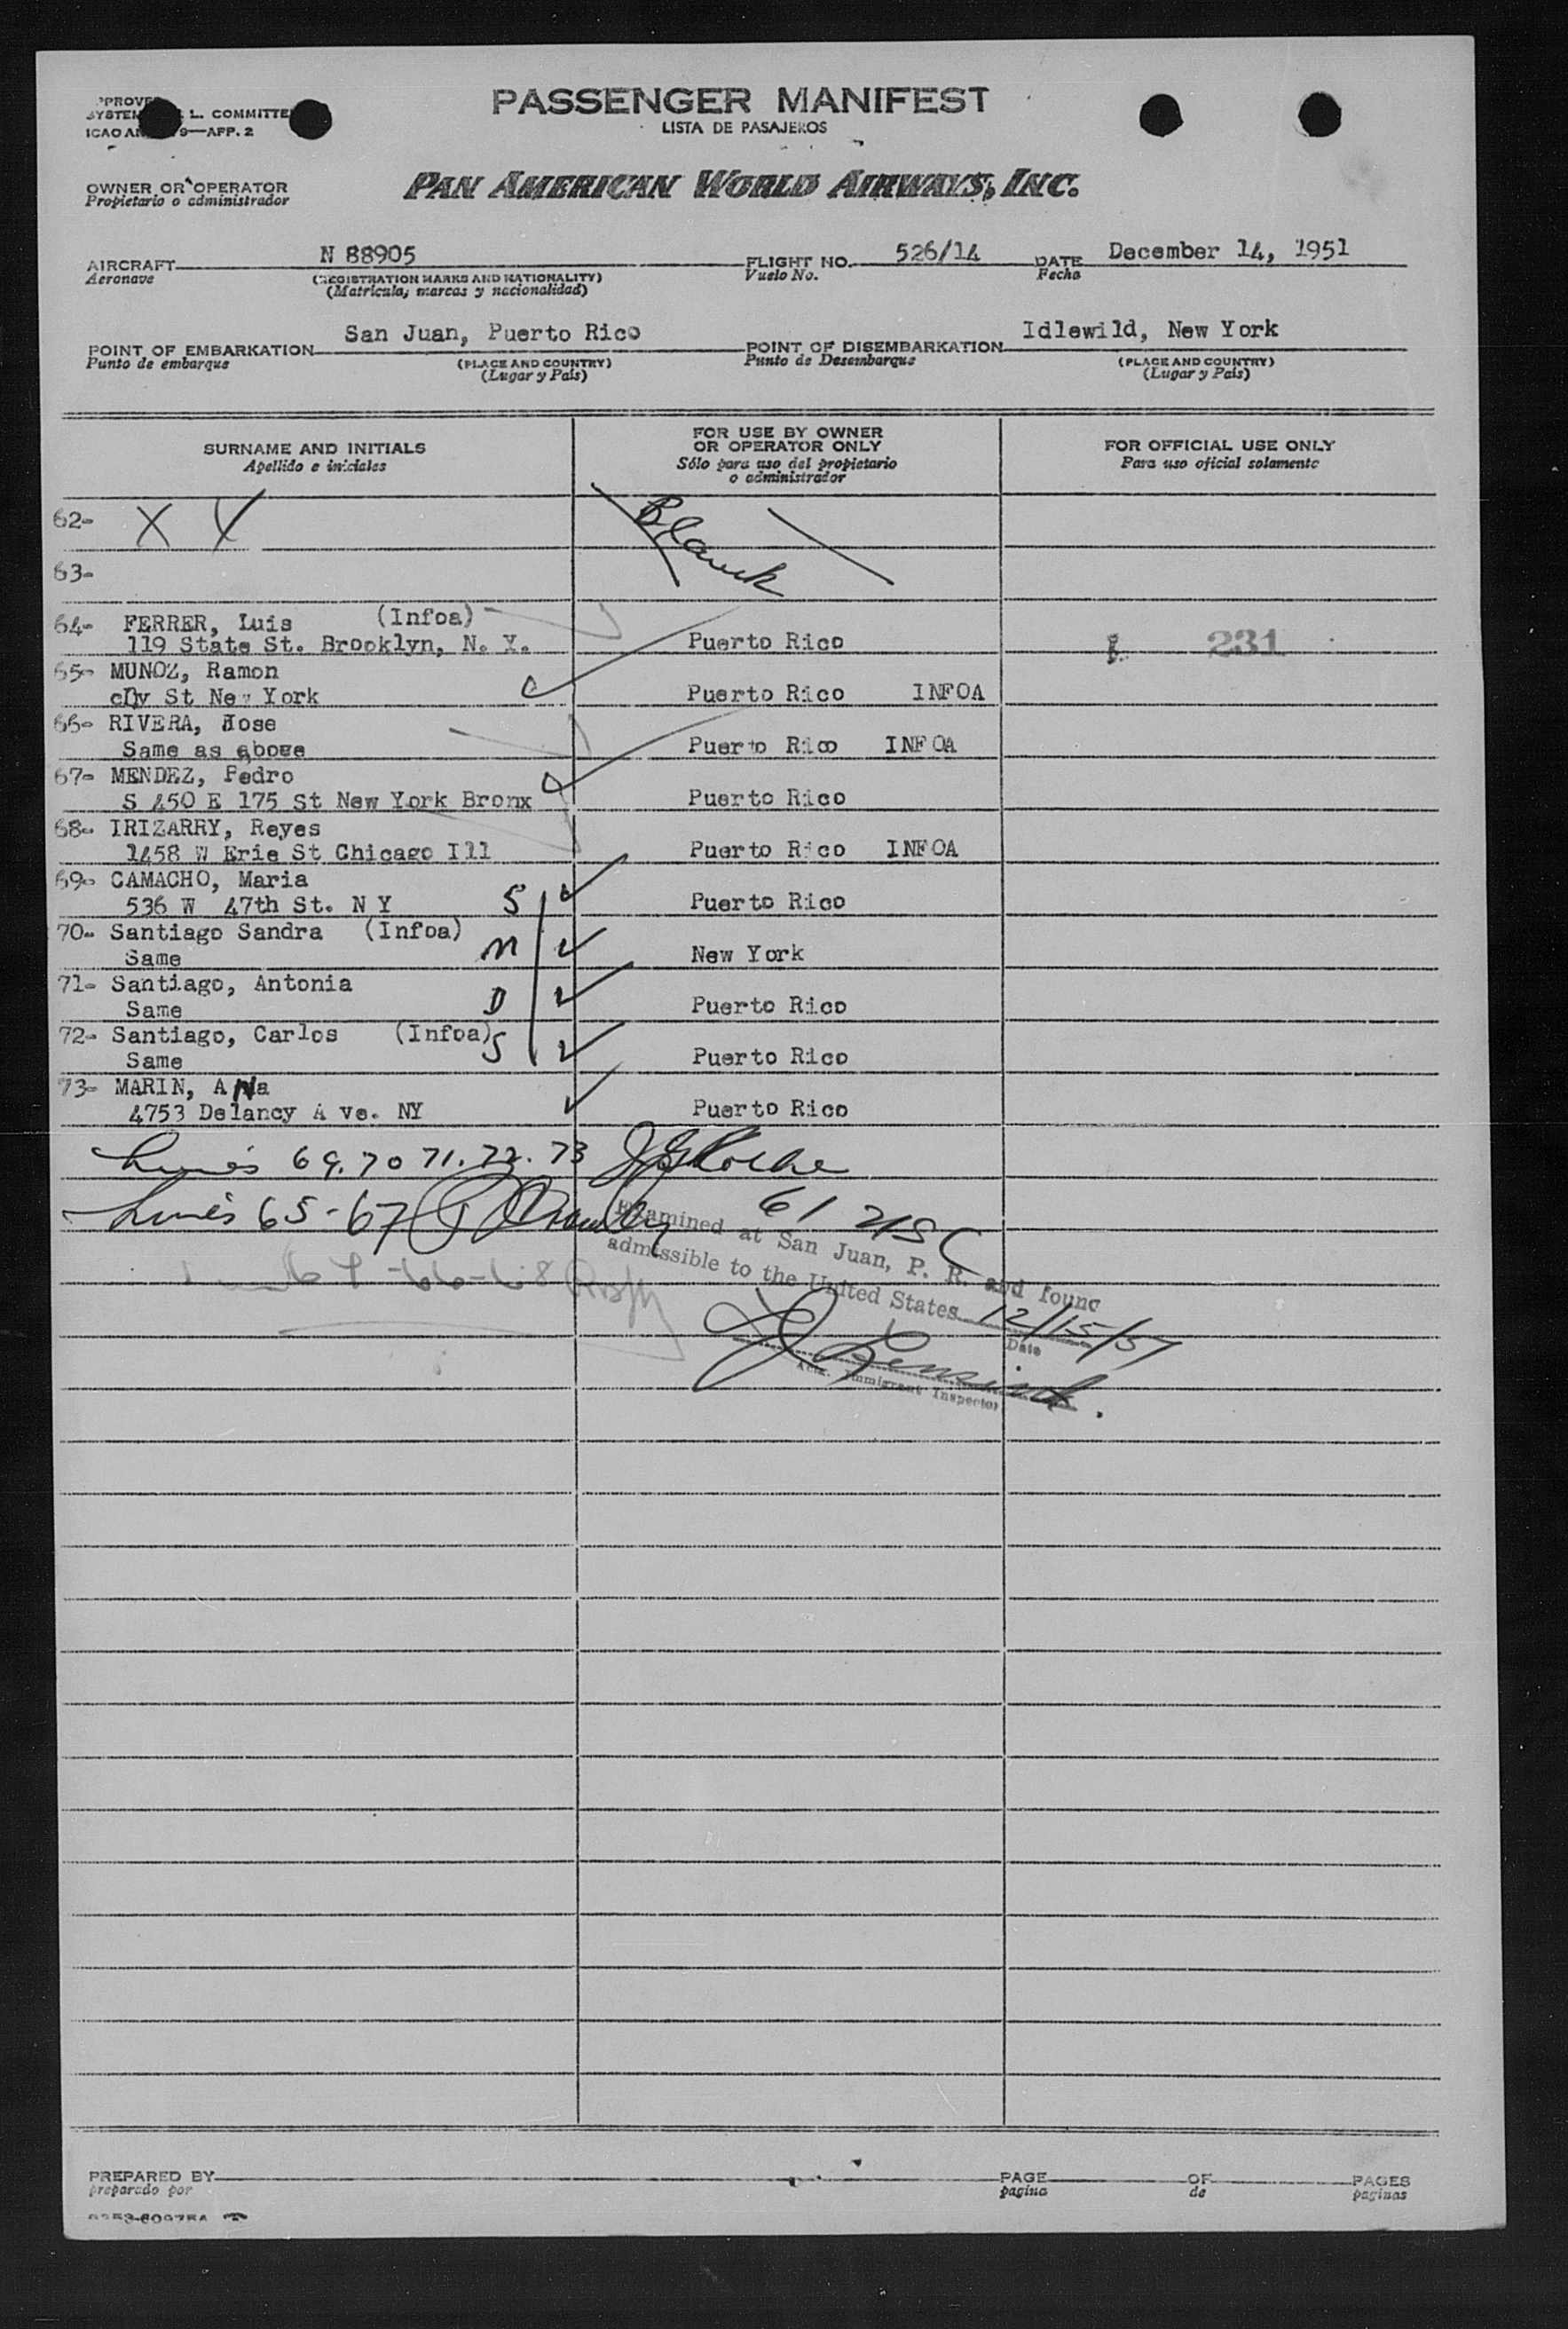 PASSENGER MANIFEST
LISTA DE PASAJEROS
L. COMMITTE
9—APP. 2
OWNER OR OPERATOR
Propietario o administrador
PAN AMERICAN WORLD AIRWAYS, INC.
AIRCRAFT N 88905 FLIGHT NO. 526/14 DATE December 14, 1951
Aeronave (REGISTRATION MARKS AND NATIONALITY) Vuelo No. Fecha
(Matrícula, marcas y nacionalidad)
POINT OF EMBARKATION San Juan, Puerto Rico POINT OF DISEMBARKATION Idlewild, New York
Punto de embarque (PLACE AND COUNTRY) Punto de Desembarque (PLACE AND COUNTRY)
(Lugar y País) (Lugar y País)
SURNAME AND INITIALS FOR USE BY OWNER OR OPERATOR ONLY FOR OFFICIAL USE ONLY
Apellido e iniciales Sólo para uso del propietario o administrador Para uso oficial solamente
62- X X Blank
63-
64- FERRER, Luis (Infoa)
119 State St. Brooklyn, N. Y. Puerto Rico 231
65- MUNOZ, Ramon
St New York Puerto Rico INFOA
66- RIVERA, Jose
Same as above Puerto Rico INFOA
67- MENDEZ, Pedro
S 450 E 175 St New York Bronx Puerto Rico
68- IRIZARRY, Reyes
1458 W Erie St Chicago Ill Puerto Rico INFOA
69- CAMACHO, Maria
536 W 47th St. N Y S Puerto Rico
70- Santiago Sandra (Infoa)
Same M New York
71- Santiago, Antonia
Same D Puerto Rico
72- Santiago, Carlos (Infoa)
Same S Puerto Rico
73- MARIN, ANa
4753 Delancy A ve. NY Puerto Rico
69.70 71.72.73
65-67
61 USC
Examined at San Juan, P. R. and found
admissible to the United States 12/15/51
Date
Immigrant Inspector
PREPARED BY PAGE OF PAGES
preparado por pagina de paginas